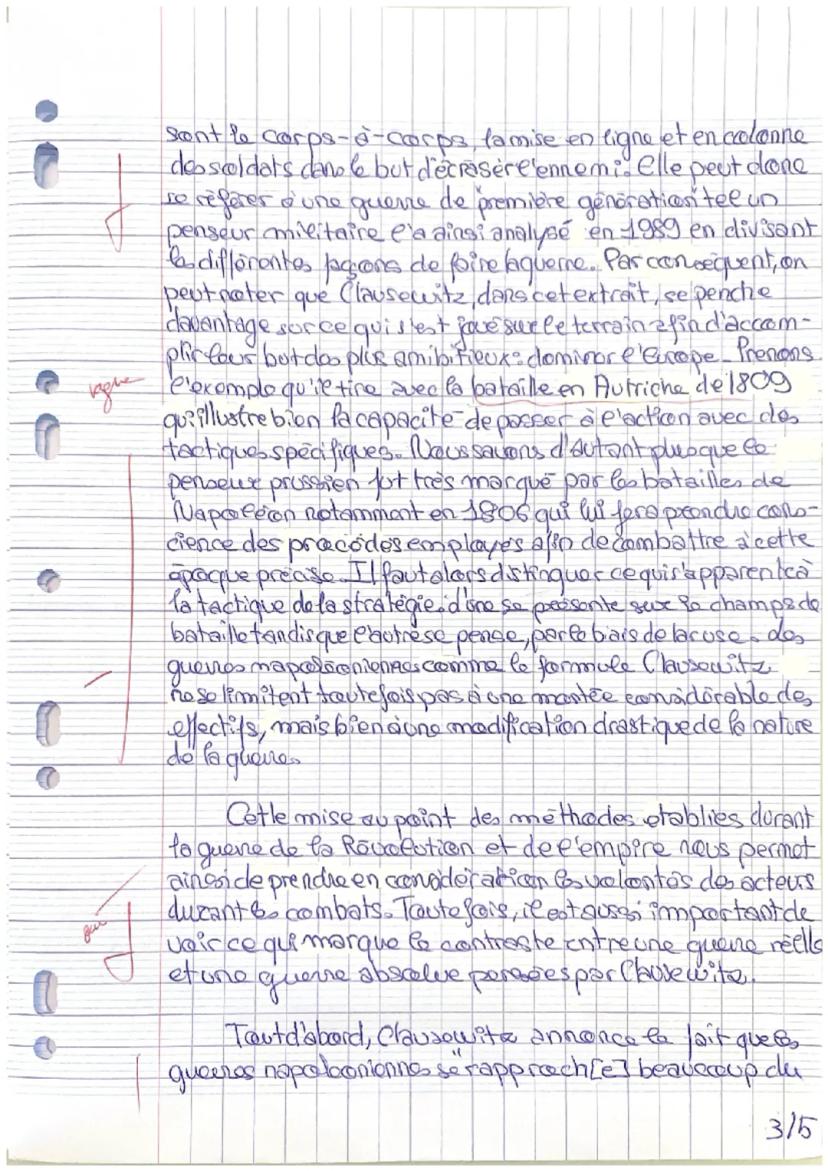 sont le corps-à-corps, la mise en ligne et en colonne
des soldats dans le but d'écraser l'ennemi. Elle peut donc
se référer à une guerre de première génération tel un
penseur militaire l'a ainsi analysé en 1989 en divisant
les différentes façons de faire la guerre. Par conséquent, on
peut noter que Clausewitz, dans cet extrait, se penche
davantage sur ce qui s'est joué sur le terrain afin d'accom-
plir leur but des plus amibitieux : dominer l'Europe. Prenons
vague
l'exemple qu'il tire avec la bataille en Autriche de 1809
qui illustre bien la capacité de passer à l'action avec des
tactiques spécifiques. Nous savons d'autant plus que le
penseur prussien fut très marqué par les batailles de
Napoléon notamment en 1806 qui lui fera prendre cons-
cience des procédés employés afin de combattre à cette
époque précise. Il faut alors distinguer ce qui s'apparente à
la tactique de la stratégie, l'une se présente sur le champs de
bataille tandis que l'autre se pense, par le biais de la ruse. des
guerres napoléoniennes comme le formule Clausewitz
ne se limitent toutefois pas à une montée considérable des
effectifs, mais bien à une modification drastique de la nature
de la guerre.
Cette mise au point des méthodes établies durant
la guerre de la Révolution et de l'empire nous permet
ainsi de prendre en considération les volontés des acteurs
durant les combats. Toutefois, il est aussi important de
voir ce qui marque le contraste entre une guerre réelle
et une guerre absolue pensées par Clausewitz.
Tout d'abord, Clausewitz annonce le fait que les
guerres napoléoniennes se "rapproch[e] beaucoup du
3/5